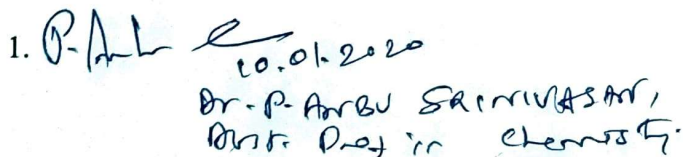 1. P.
10.01.2020
Dr. P. ANBU SRINIVASAN,
Asst. Prof in Chemistry.